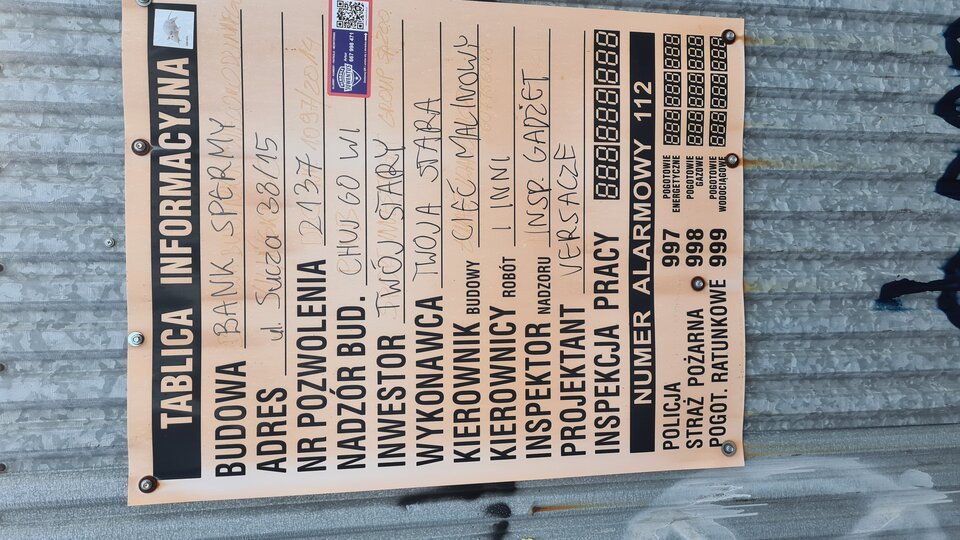 TABLICA INFORMACYJNA
BUDOWA BANK SPERMY
ADRES ul. Sucza 38/15
NR POZWOLENIA 2137 1097/2014
NADZÓR BUD. CHUJ GO WI
INWESTOR TWÓJ STARY
WYKONAWCA TWOJA STARA
KIEROWNIK BUDOWY CIEĆ MALINOWY
KIEROWNICY ROBÓT I INNI
INSPEKTOR NADZORU INSP. GADŻET
PROJEKTANT VERSACZE
INSPEKCJA PRACY
NUMER ALARMOWY 112
POLICJA 997 POGOTOWIE ENERGETYCZNE
STRAŻ POŻARNA 998 POGOTOWIE GAZOWE
POGOT. RATUNKOWE 999 POGOTOWIE WODOCIĄGOWE